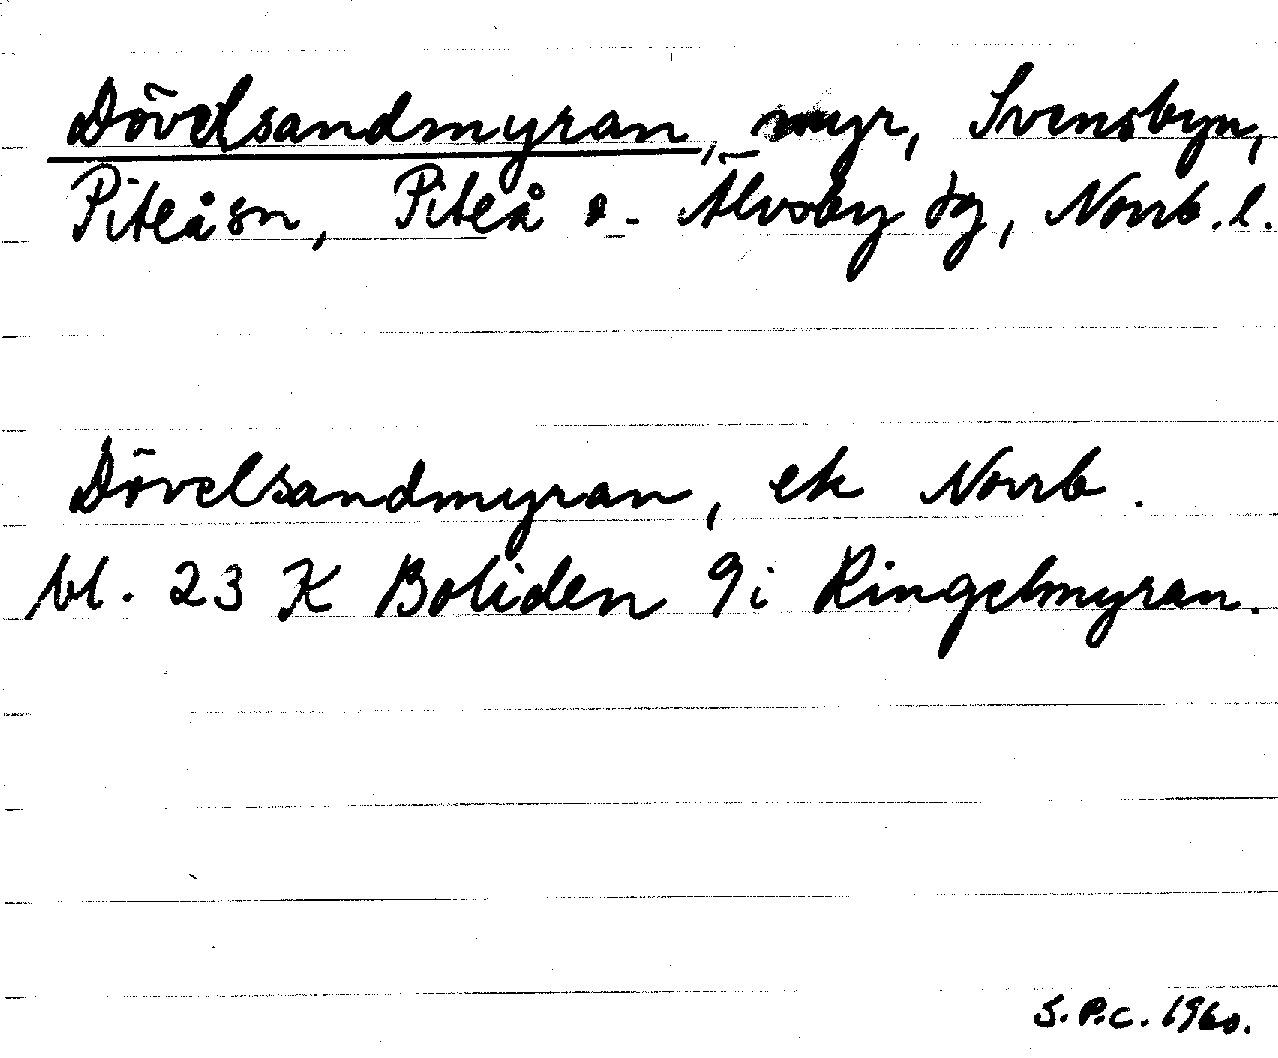 Dövelsandmyran, myr, Svensbyn,
Piteå sn, Piteå o. Älvsby tg, Norrb. l.
Dövelsandmyran, ek Norrb.
bl. 23 K Boliden 9i Ringelmyran.
S.P.C. 1960.